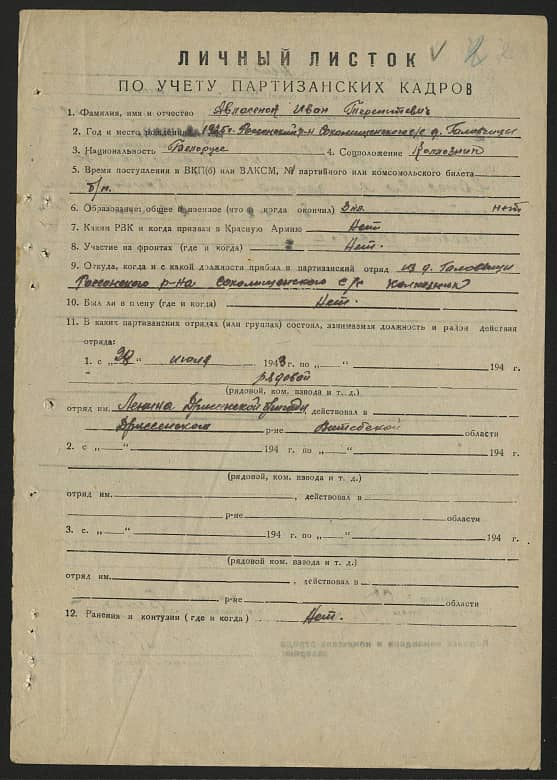 ЛИЧНЫЙ ЛИСТОК
ПО УЧЕТУ ПАРТИЗАНСКИХ КАДРОВ
1. Фамилия, имя и отчество Авласенок Иван Терентьевич
2. Год и место рождения 1925 г. Россонский р-н Сохолищенского с/с д. Голович
3. Национальность Белорусс 4. Соцположение Колхозник
5. Время поступления в ВКП(б) или ВЛКСМ, № партийного или комсомольского билета
б/п.
6. Образование: общее и военное (что и когда окончил) 3 кл. нет
7. Каким РВК и когда призван в Красную Армию Нет
8. Участие на фронтах (где и когда) Нет.
9. Откуда, когда и с какой должности прибыл в партизанский отряд из д.
Россонского р-на Сохолищенского с/с колхозник
10. Был ли в плену (где и когда) Нет.
11. В каких партизанских отрядах (или группах) состоял, занимаемая должность и район действия
отряда:
1. с „ “ июля 1943 г. по „ “ 194 г.
рядовой
(рядовой, ком. взвода и т. д.)
отряд им. Ленина Дриссенской бригады, действовал в
Дриссенском р-не Витебской области
2. с „ “ 194 г. по „ “ 194 г.
(рядовой, ком. взвода и т. д.)
отряд им. , действовал в
р-не области
3. с. „ “ 194 г. по „ “ 194 г.
(рядовой, ком. взвода и т. д.)
отряд им. , действовал в
р-не области
12. Ранения и контузии (где и когда) Нет.